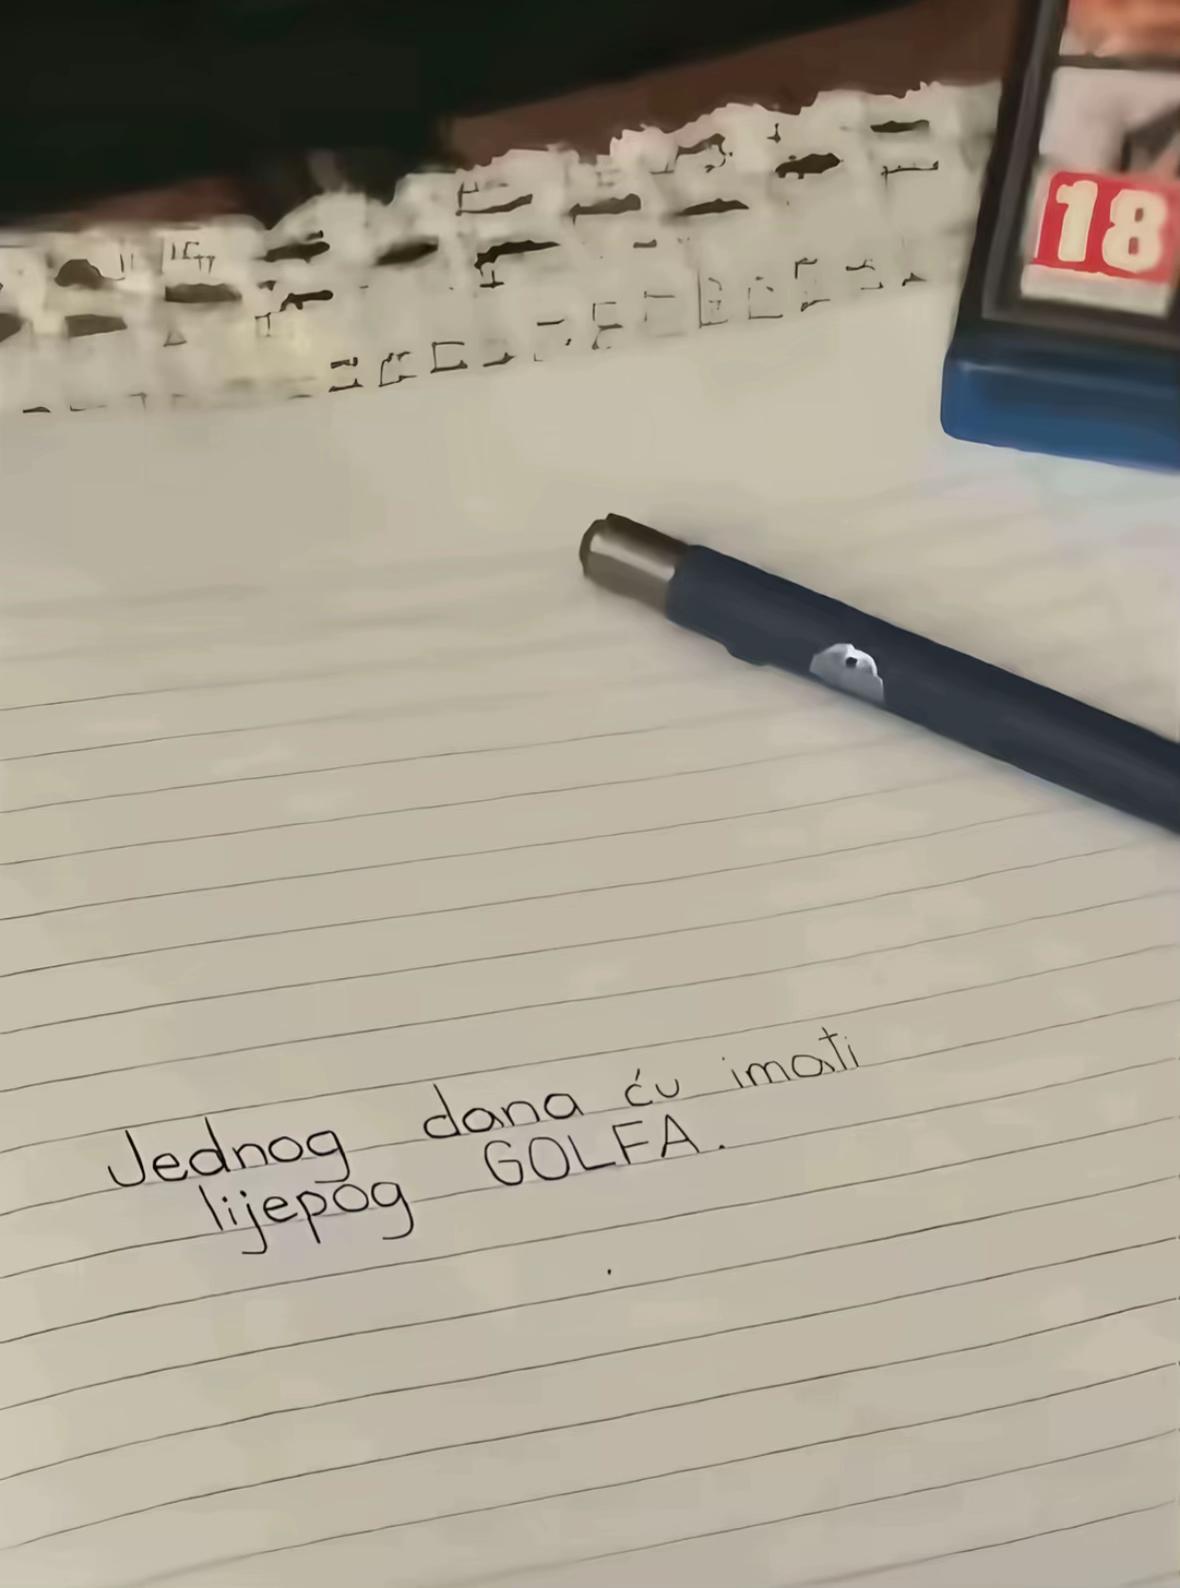 18
Jednog dana ću imati
lijepog GOLFA.